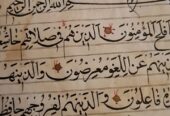 الرَّحْمٰنِ الرَّحِ
المُؤْمِنُونَ الَّذِينَ هُمْ فِي صَلَاتِهِمْ خَاشِعُ
هُمْ عَنِ اللَّغْوِ مُعْرِضُونَ وَالَّذِينَ هُمْ
فَاعِلُونَ وَالَّذِينَ هُمْ لِفُرُوجِهِمْ حَافِظُ